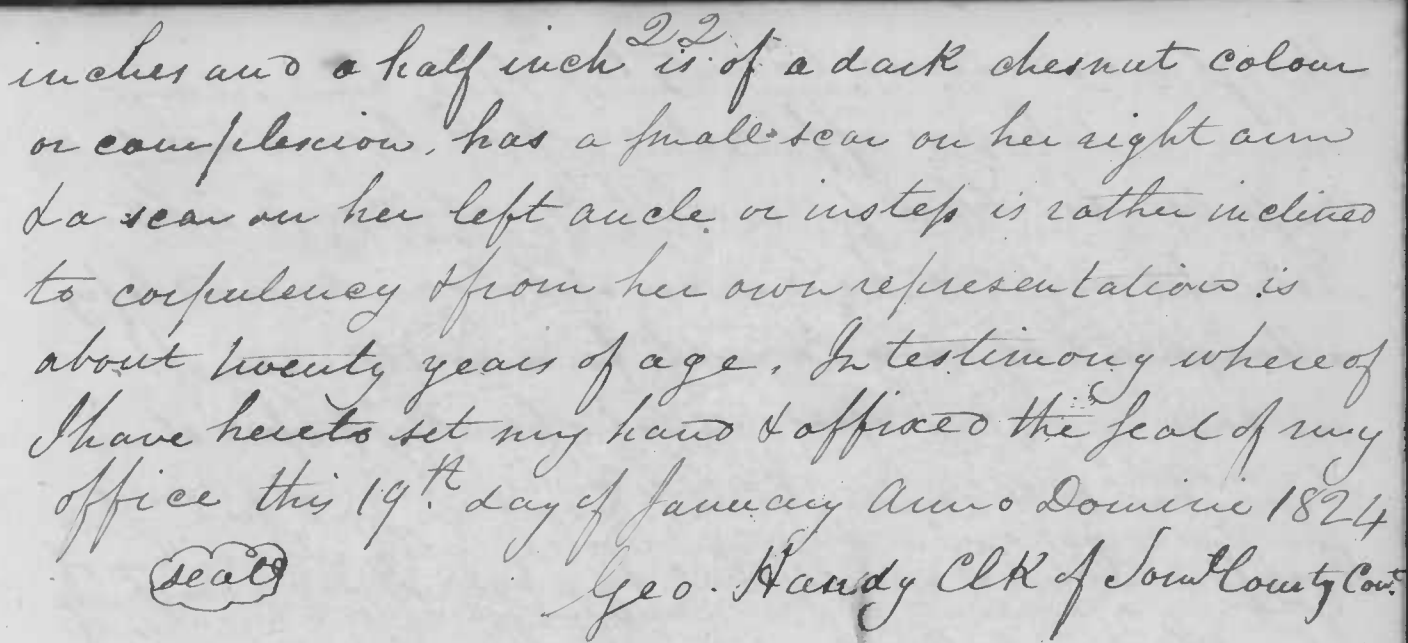 22
inches and a half inch is of a dark chesnut colour
or complexion, has a small scar on her right arm
& a scar on her left ancle or instep is rather inclined
to corpulency & from her own representations is
about twenty years of age. In testimony where of
I have hereto set my hand & affixed the seal of my
office this 19th day of January Anno Domini 1824
seal Geo. Handy Clk of Somt County Cort.